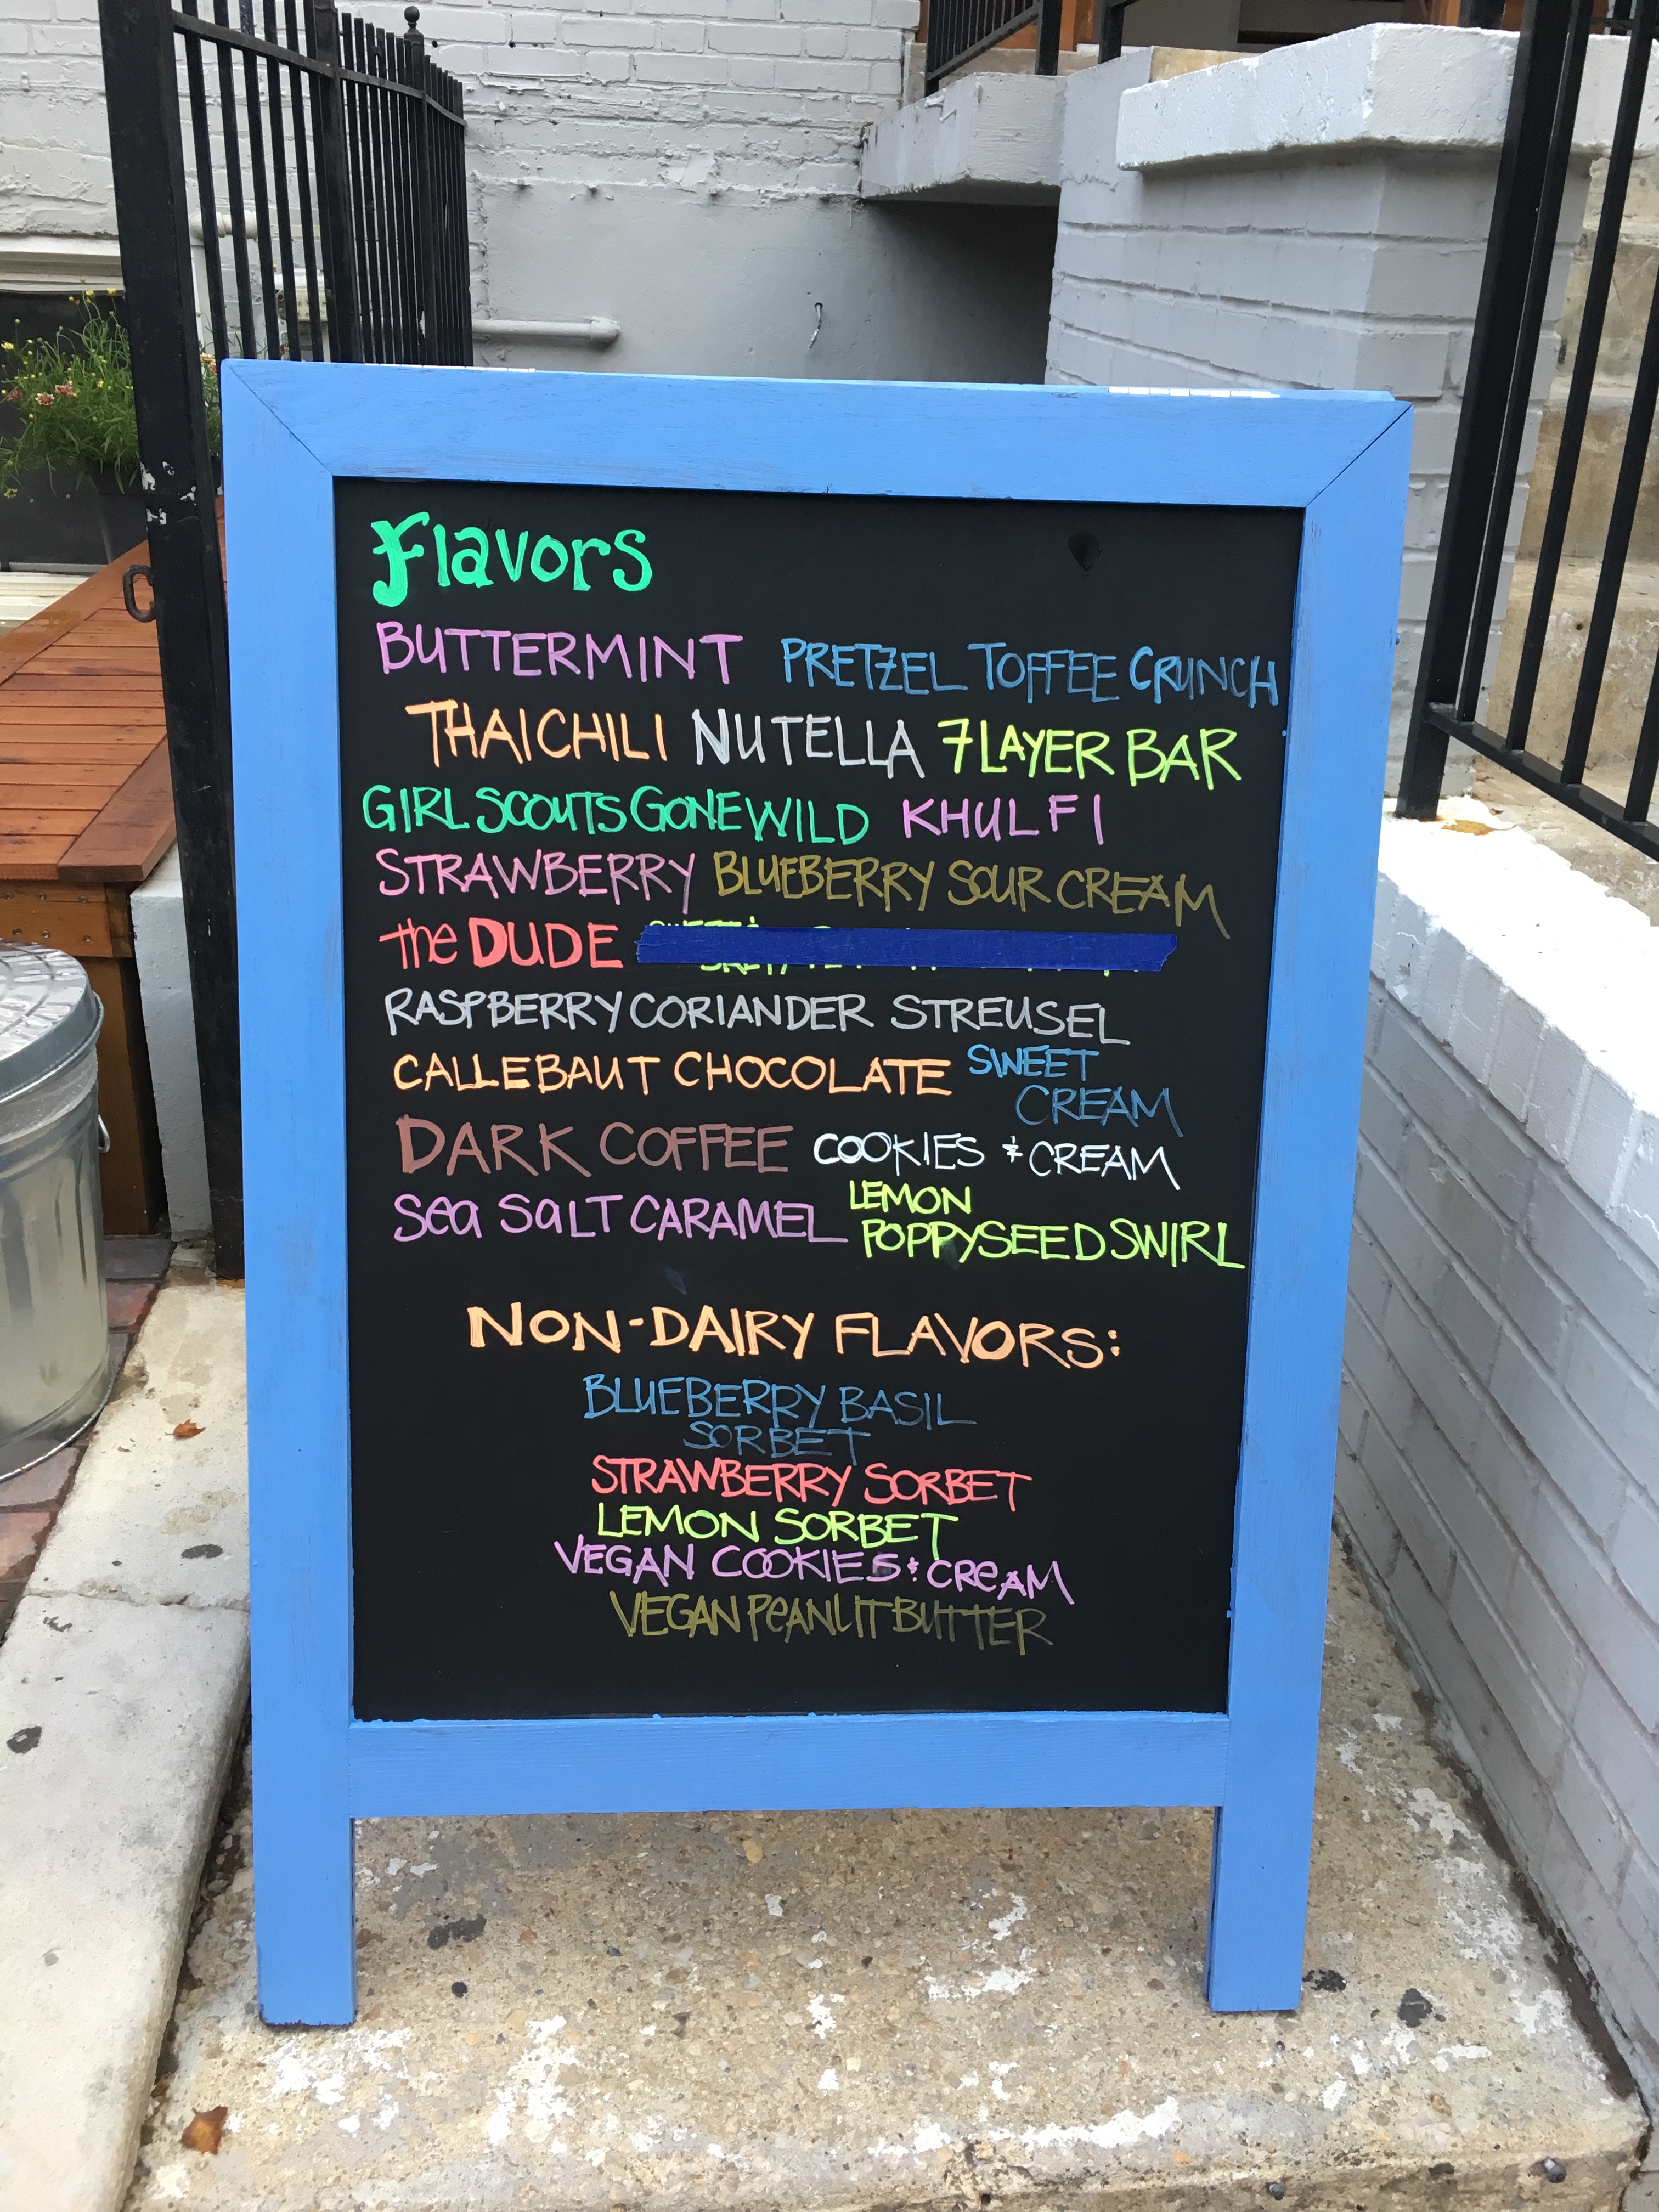 Flavors
BUTTERMINT PRETZEL TOFFEE CRUNCH
THAI CHILI NUTELLA 7 LAYER BAR
GIRL SCOUTS GONE WILD KHULFI
STRAWBERRY BLUEBERRY SOUR CREAM
the DUDE
RASPBERRY CORIANDER STREUSEL
CALLEBAUT CHOCOLATE SWEET
CREAM
DARK COFFEE COOKIES & CREAM
Sea SaLT CARAMEL LEMON
POPPYSEED SWIRL
NON-DAIRY FLAVORS:
BLUEBERRY BASIL
SORBET
STRAWBERRY SORBET
LEMON SORBET
VEGAN COOKIES & CReAM
VEGAN PeANUT BUTTER